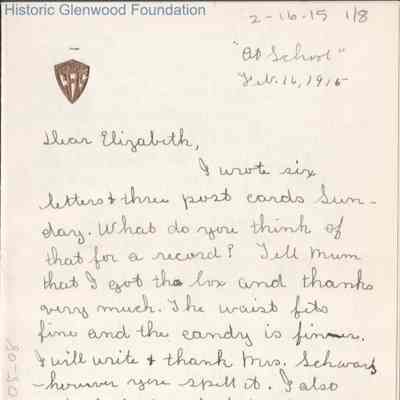 Historic Glenwood Foundation
2-16-15 1/8
"At School"
Feb. 16, 1915
Dear Elizabeth,
I wrote six
letters & three post cards Sun-
day. What do you think of
that for a record? Tell Mum
that I got the box and thanks
very much. The waist fits
fine and the candy is finer.
I will write & thank Mrs. Schwarz
-however you spell it. I also